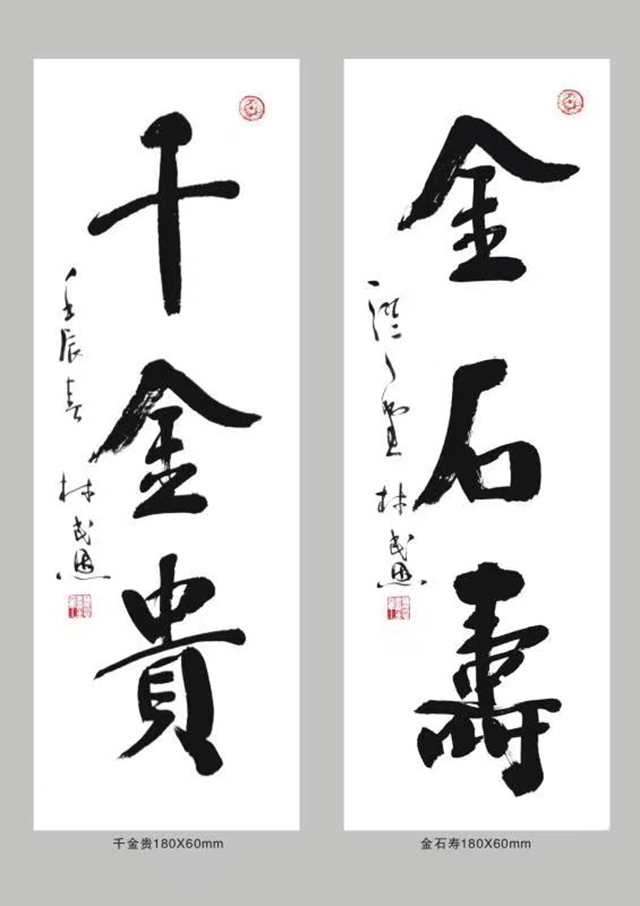 千金貴
壬辰春 林武恩
千金贵180X60mm
金石壽
林武恩
金石寿180X60mm